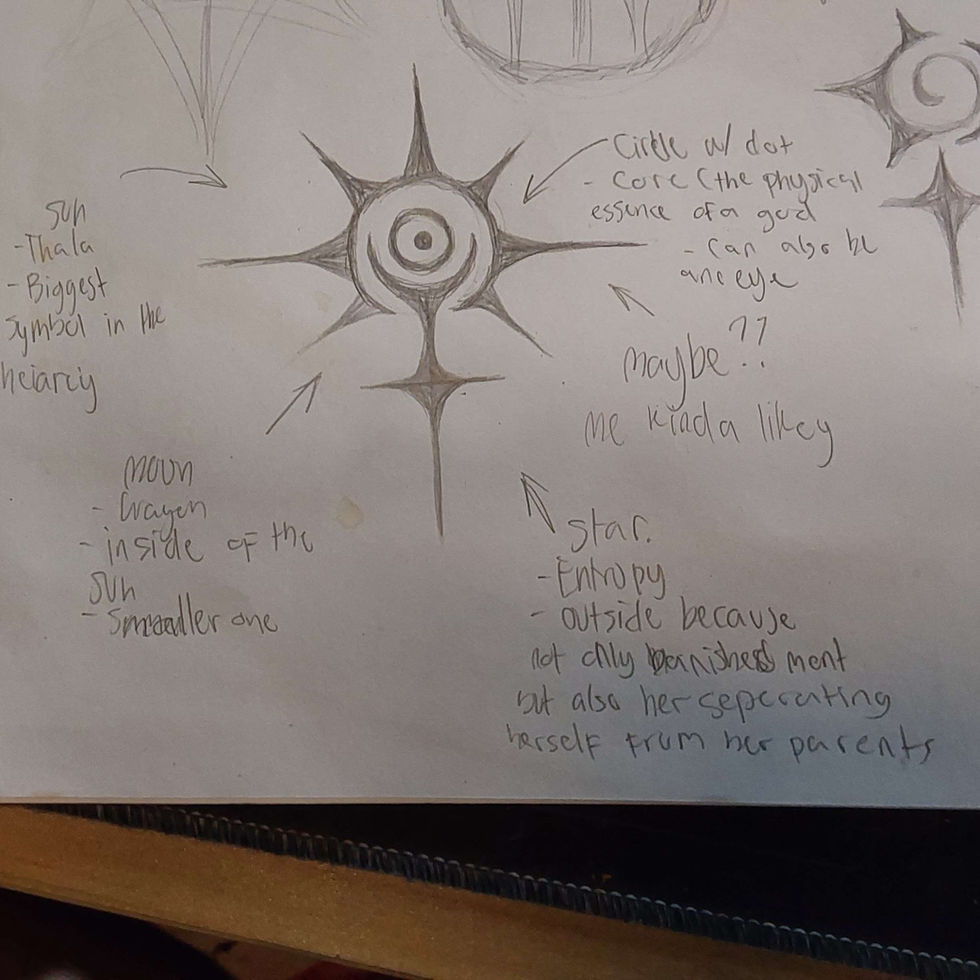 Sun
- Thala
- Biggest
symbol in the
heiarciy
Circle w/ dot
- Core (the physical
essence of a god
- Can also be
an eye
maybe??
me kinda likey
moon
- 
- inside of the
sun
- Smaller one
Star.
- Entropy
- outside because
not only banishment
but also her seperating
herself from her parents